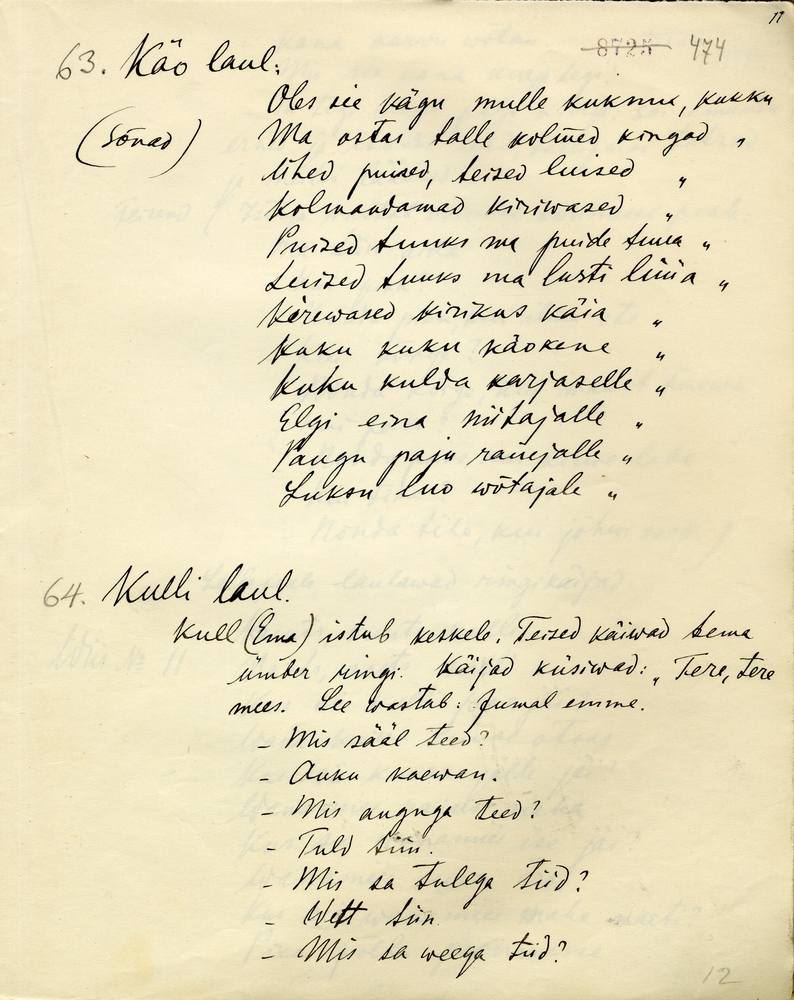 11
8725 474
63. Käo laul:
Oles sie kägu mulle kukknu, kukku
(Sõnad) Ma ostas talle kolmed kingad "
Ühed puised, teised luised "
Kolmandamad kiriwased "
Puised tuuks ma puide tuua "
Teised tuuks ma lusti lüüa "
Kirewased kirikus käia "
Kuku kuku käokene "
Kuku kulda karjaselle "
Elgi eina niitajalle "
Pangu paju raiujalle "
Luksu luo wõtajale "
64. Kulli laul.
Kull (Ema) istub keskele. Teised käiwad tema
ümber ringi. Käijad küsiwad: „Tere, tere
mees. See wastab: Jumal emme.
- Mis sääl teed?
- Auku kaewan.
- Mis auguga teed?
- Tuld tiin.
- Mis sa tulega tiid?
- Wett tiin
- Mis sa weega tiid?
12